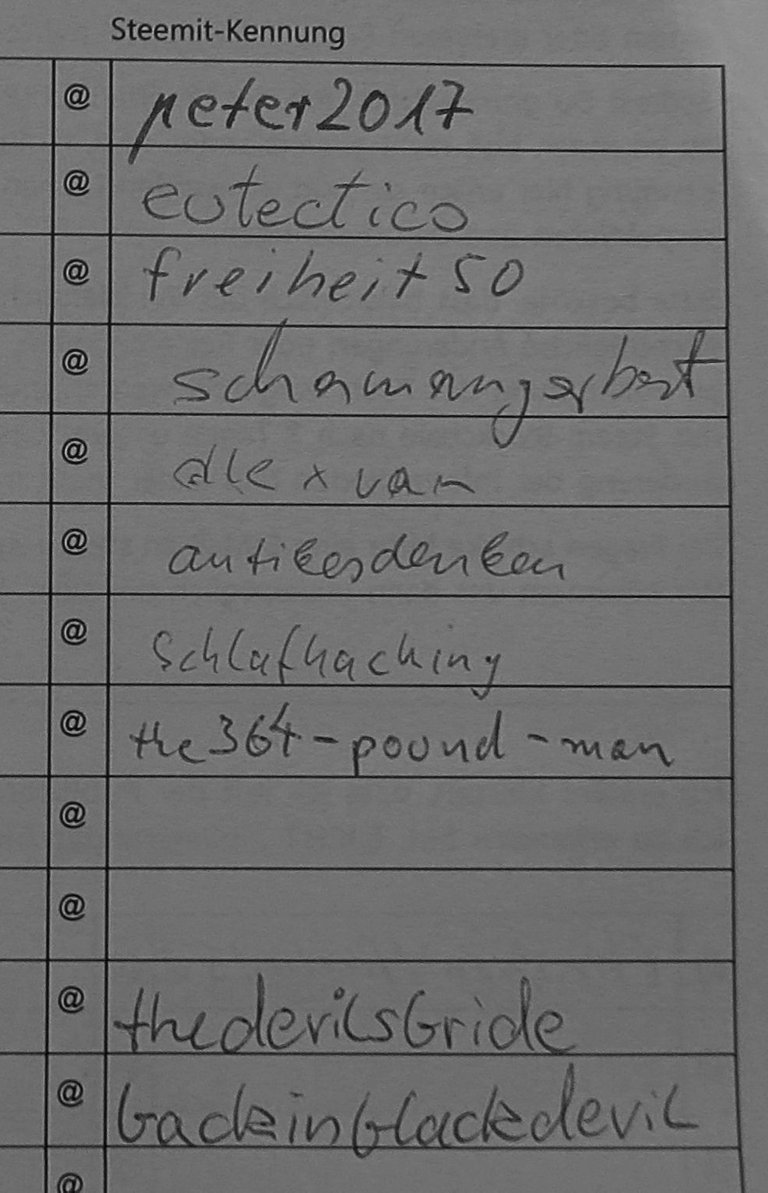 Steemit-Kennung
@ peter2017
@ eutectico
@ freiheit50
@ schamangerbert
@ alexvan
@ antikesdenken
@ schlafhacking
@ the364-pound-man
@
@
@ thedevilsbride
@ backinblackdevil
@